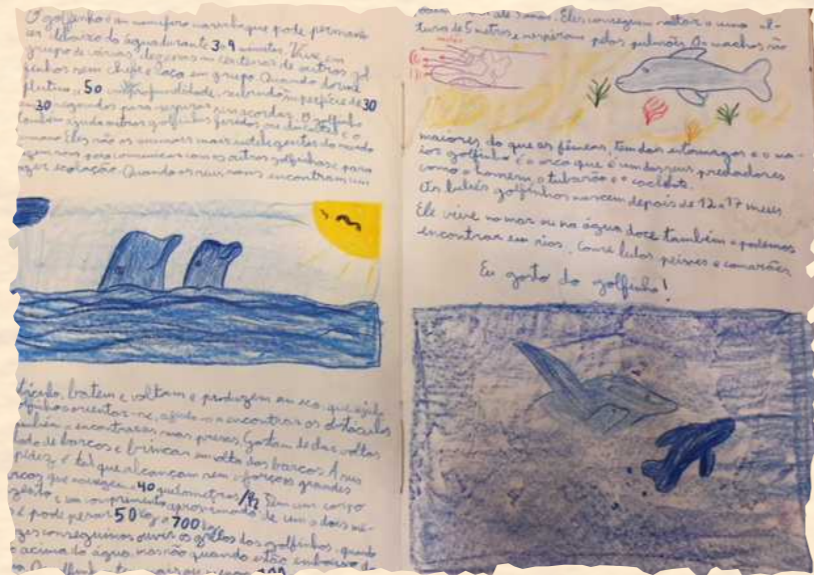 O golfinho é um mamífero marinho que pode permane
cer debaixo da água durante 3 a 9 minutos. Vive em
grupo de várias dezenas ou centenas de outros gol
finhos sem chefe e caça em grupo. Quando dorme
flutua a 50 profundidade, subindo à superfície de 30
em 30 segundos para respirar sem acordar. O golfinho
também ajuda outros golfinhos feridos ou doentes e o
humano. Eles são os animais mais inteligentes do mundo
sons para comunicar com os outros golfinhos e para
fazer ecolação. Quando os seus sons encontram um
obstáculo, batem e voltam e produzem um eco, que ajuda
golfinhos orientar-se, ajuda-os a encontrar os obstáculos
também a encontrar as suas presas. Gostam de dar voltas
lado de barcos e brincar em volta dos barcos. A sua
rapidez é tal que alcançam sem esforços grandes
barcos que navegam a 40 quilómetros/h. Tem um corpo
e um comprimento aproximado de um a dois me
e pode pesar 50 kg a 700 kg.
conseguimos ouvir os golfinhos, quando
acima da água, mas não quando estão embaixo da
100
até 5 anos. Eles conseguem saltar a uma al-
tura de 5 metros e respiram pelos pulmões. Os machos são
maiores do que as fêmeas, tem dois estomagos e o ma-
ior golfinho é a orca que é um dos seus predadores
como o homem, o tubarão e o cachalote.
Os bebés golfinhos nascem depois de 12 a 17 meses.
Ele vive no mar ou na água doce também o podemos
encontrar em rios. Come lulas peixes e camarões.
Eu gosto do golfinho!